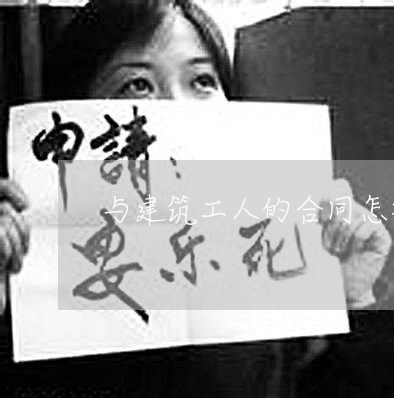 申請：
与建筑工人的合同怎
要乐死